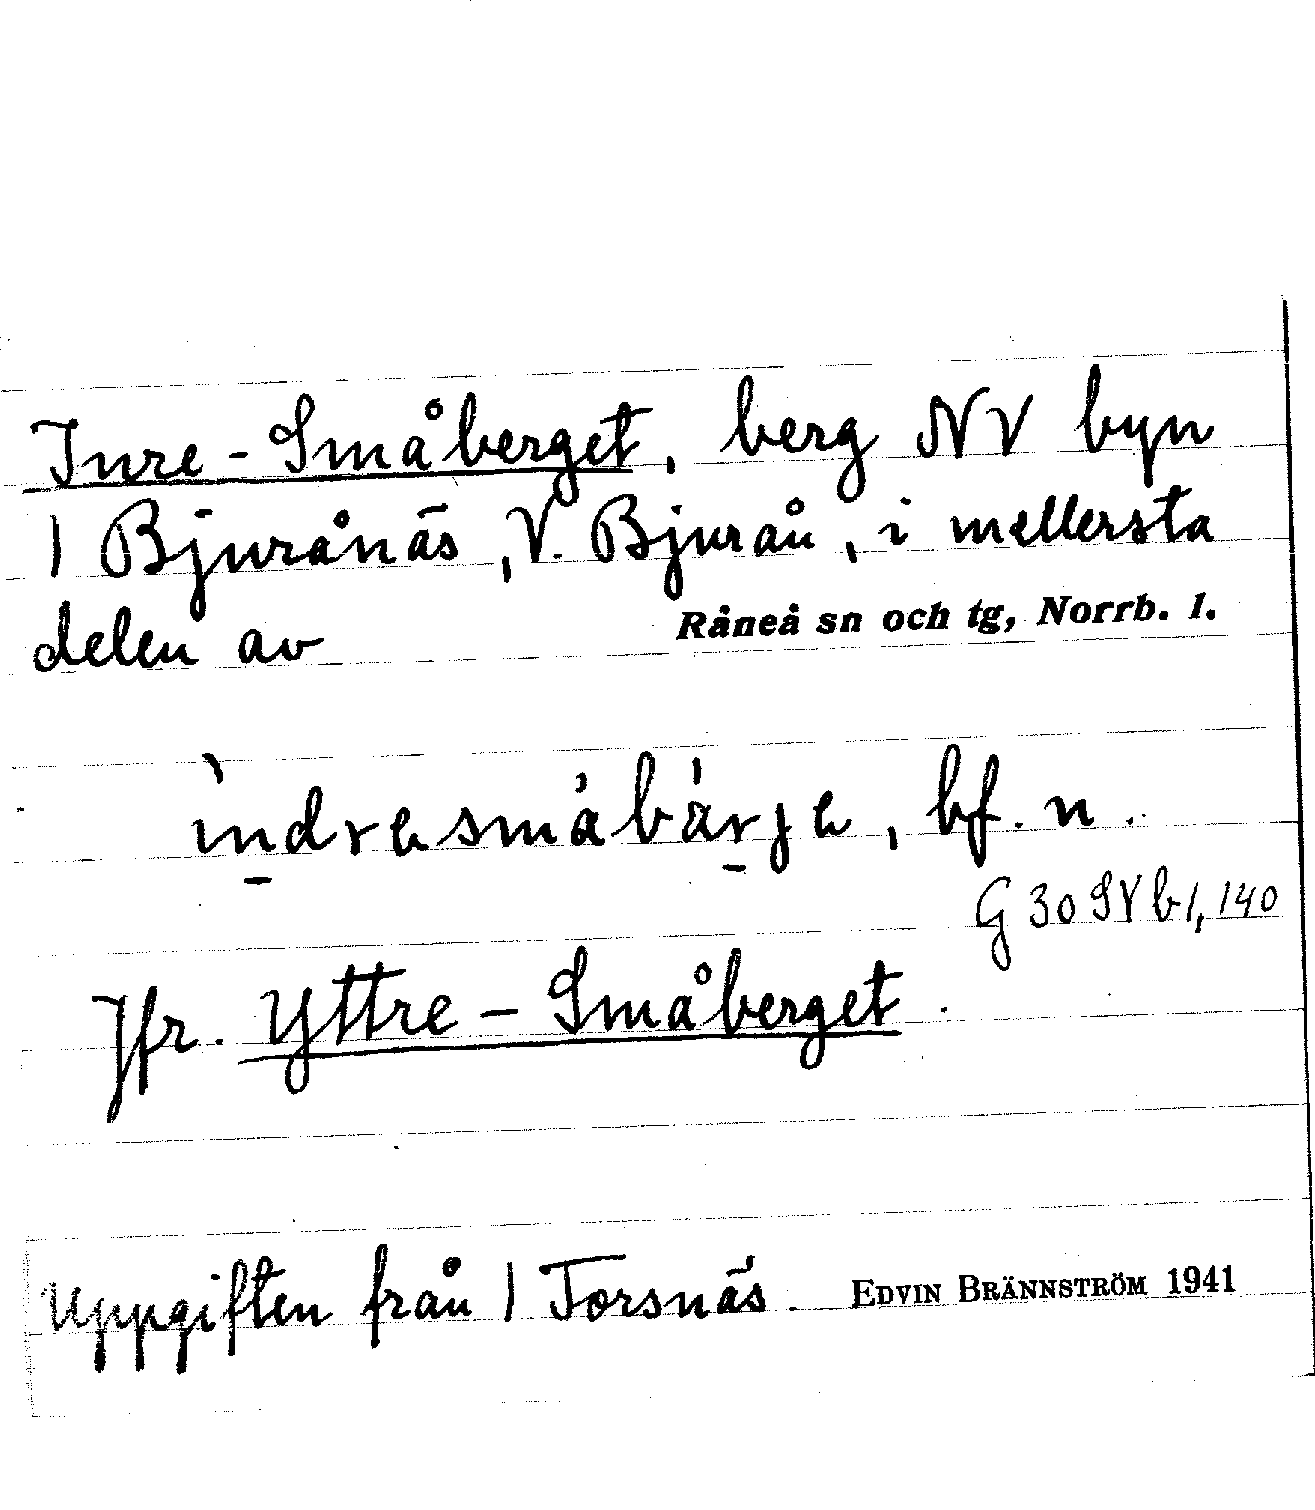 Inre-Småberget, berg NV byn
1 Bjurånäs, V. Bjurån, i mellersta
delen av Råneå sn och tg, Norrb. l.
ìndresmåbärje, bf. n.
G 30 SV b 1, 140
Jfr. Yttre-Småberget.
Uppgiften från 1 Torsnäs. EDVIN BRÄNNSTRÖM 1941